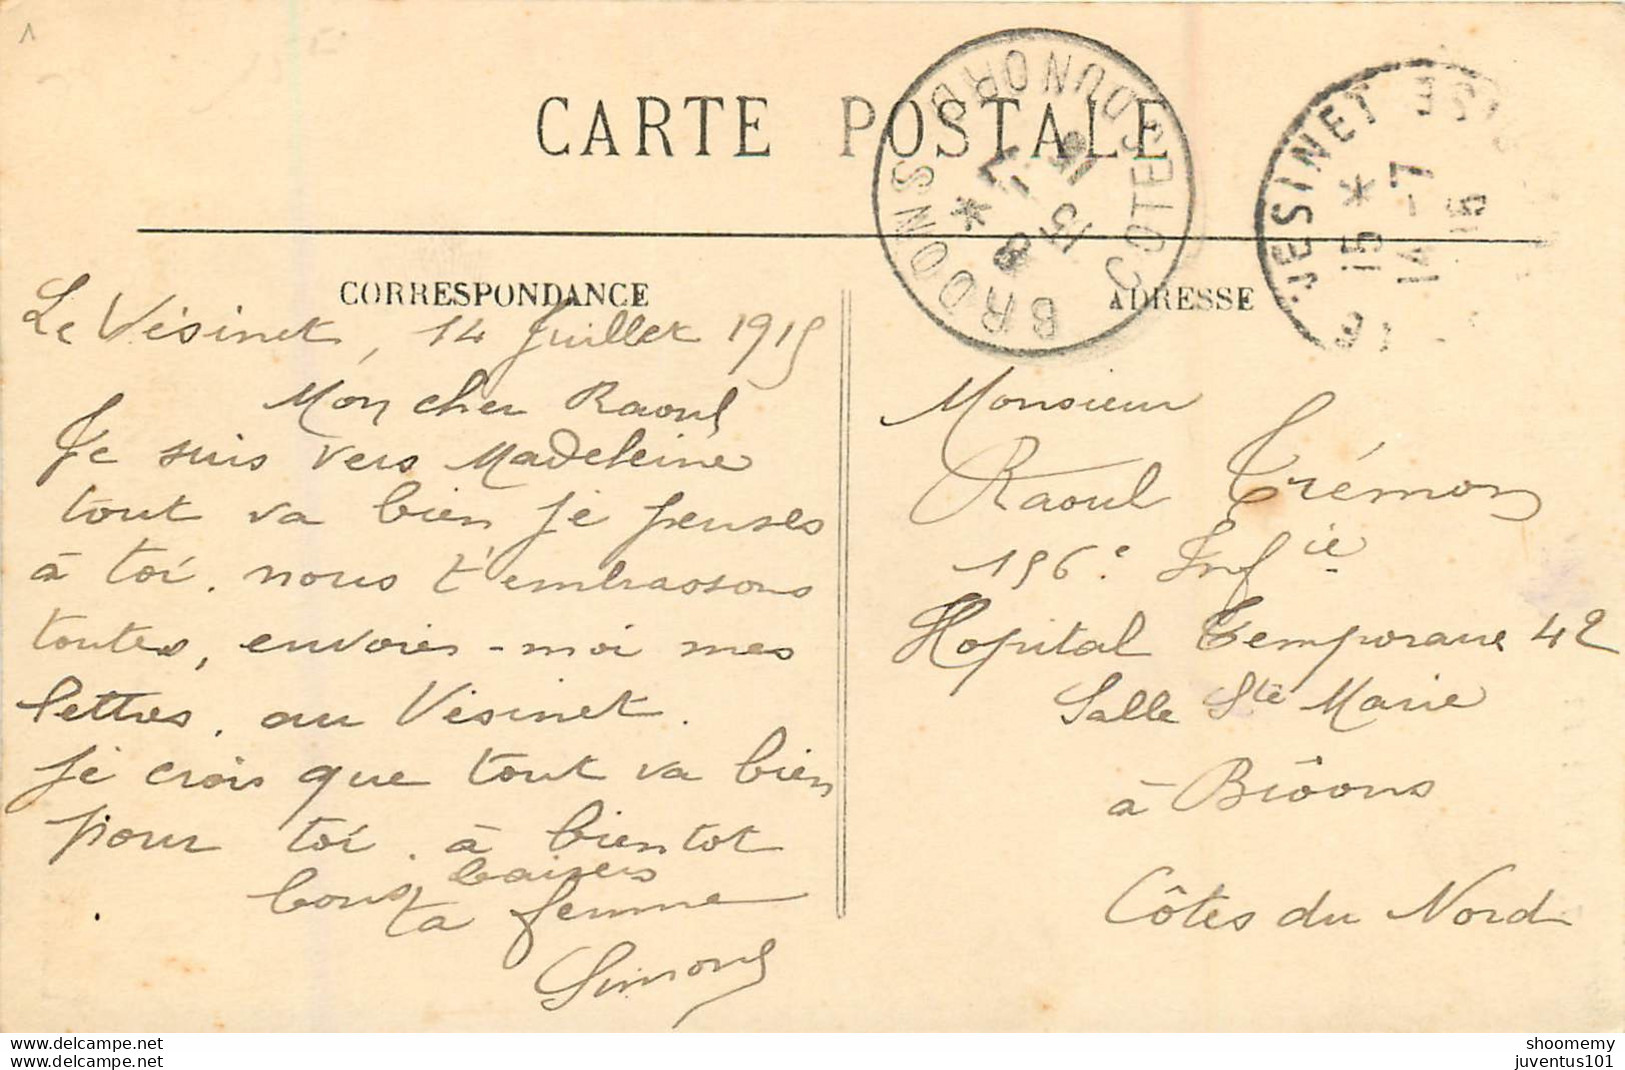 CARTE POSTALE
BROONS * COTES DU NORD
13 8
16 -7
15
LE VESINET * SEINE-ET-OISE
15 *
14 -7
15
CORRESPONDANCE
ADRESSE
Le Vésinet, 14 Juillet 1915
Mon cher Raoul
Je suis vers Madeleine
tout va bien je penses
à toi. nous t'embrassons
toutes, envoies-moi mes
lettres, au Vésinet.
je crois que tout va bien
pour toi. à bientot
bons baisers
ta femme
Simone
Monsieur
Raoul Trémon
156.e Inf ie
Hopital Temporaire 42
Salle Ste Marie
à Brôons
Côtes du Nord
https://www.delcampe.net
https://www.delcampe.net
shoomemy
juventus101